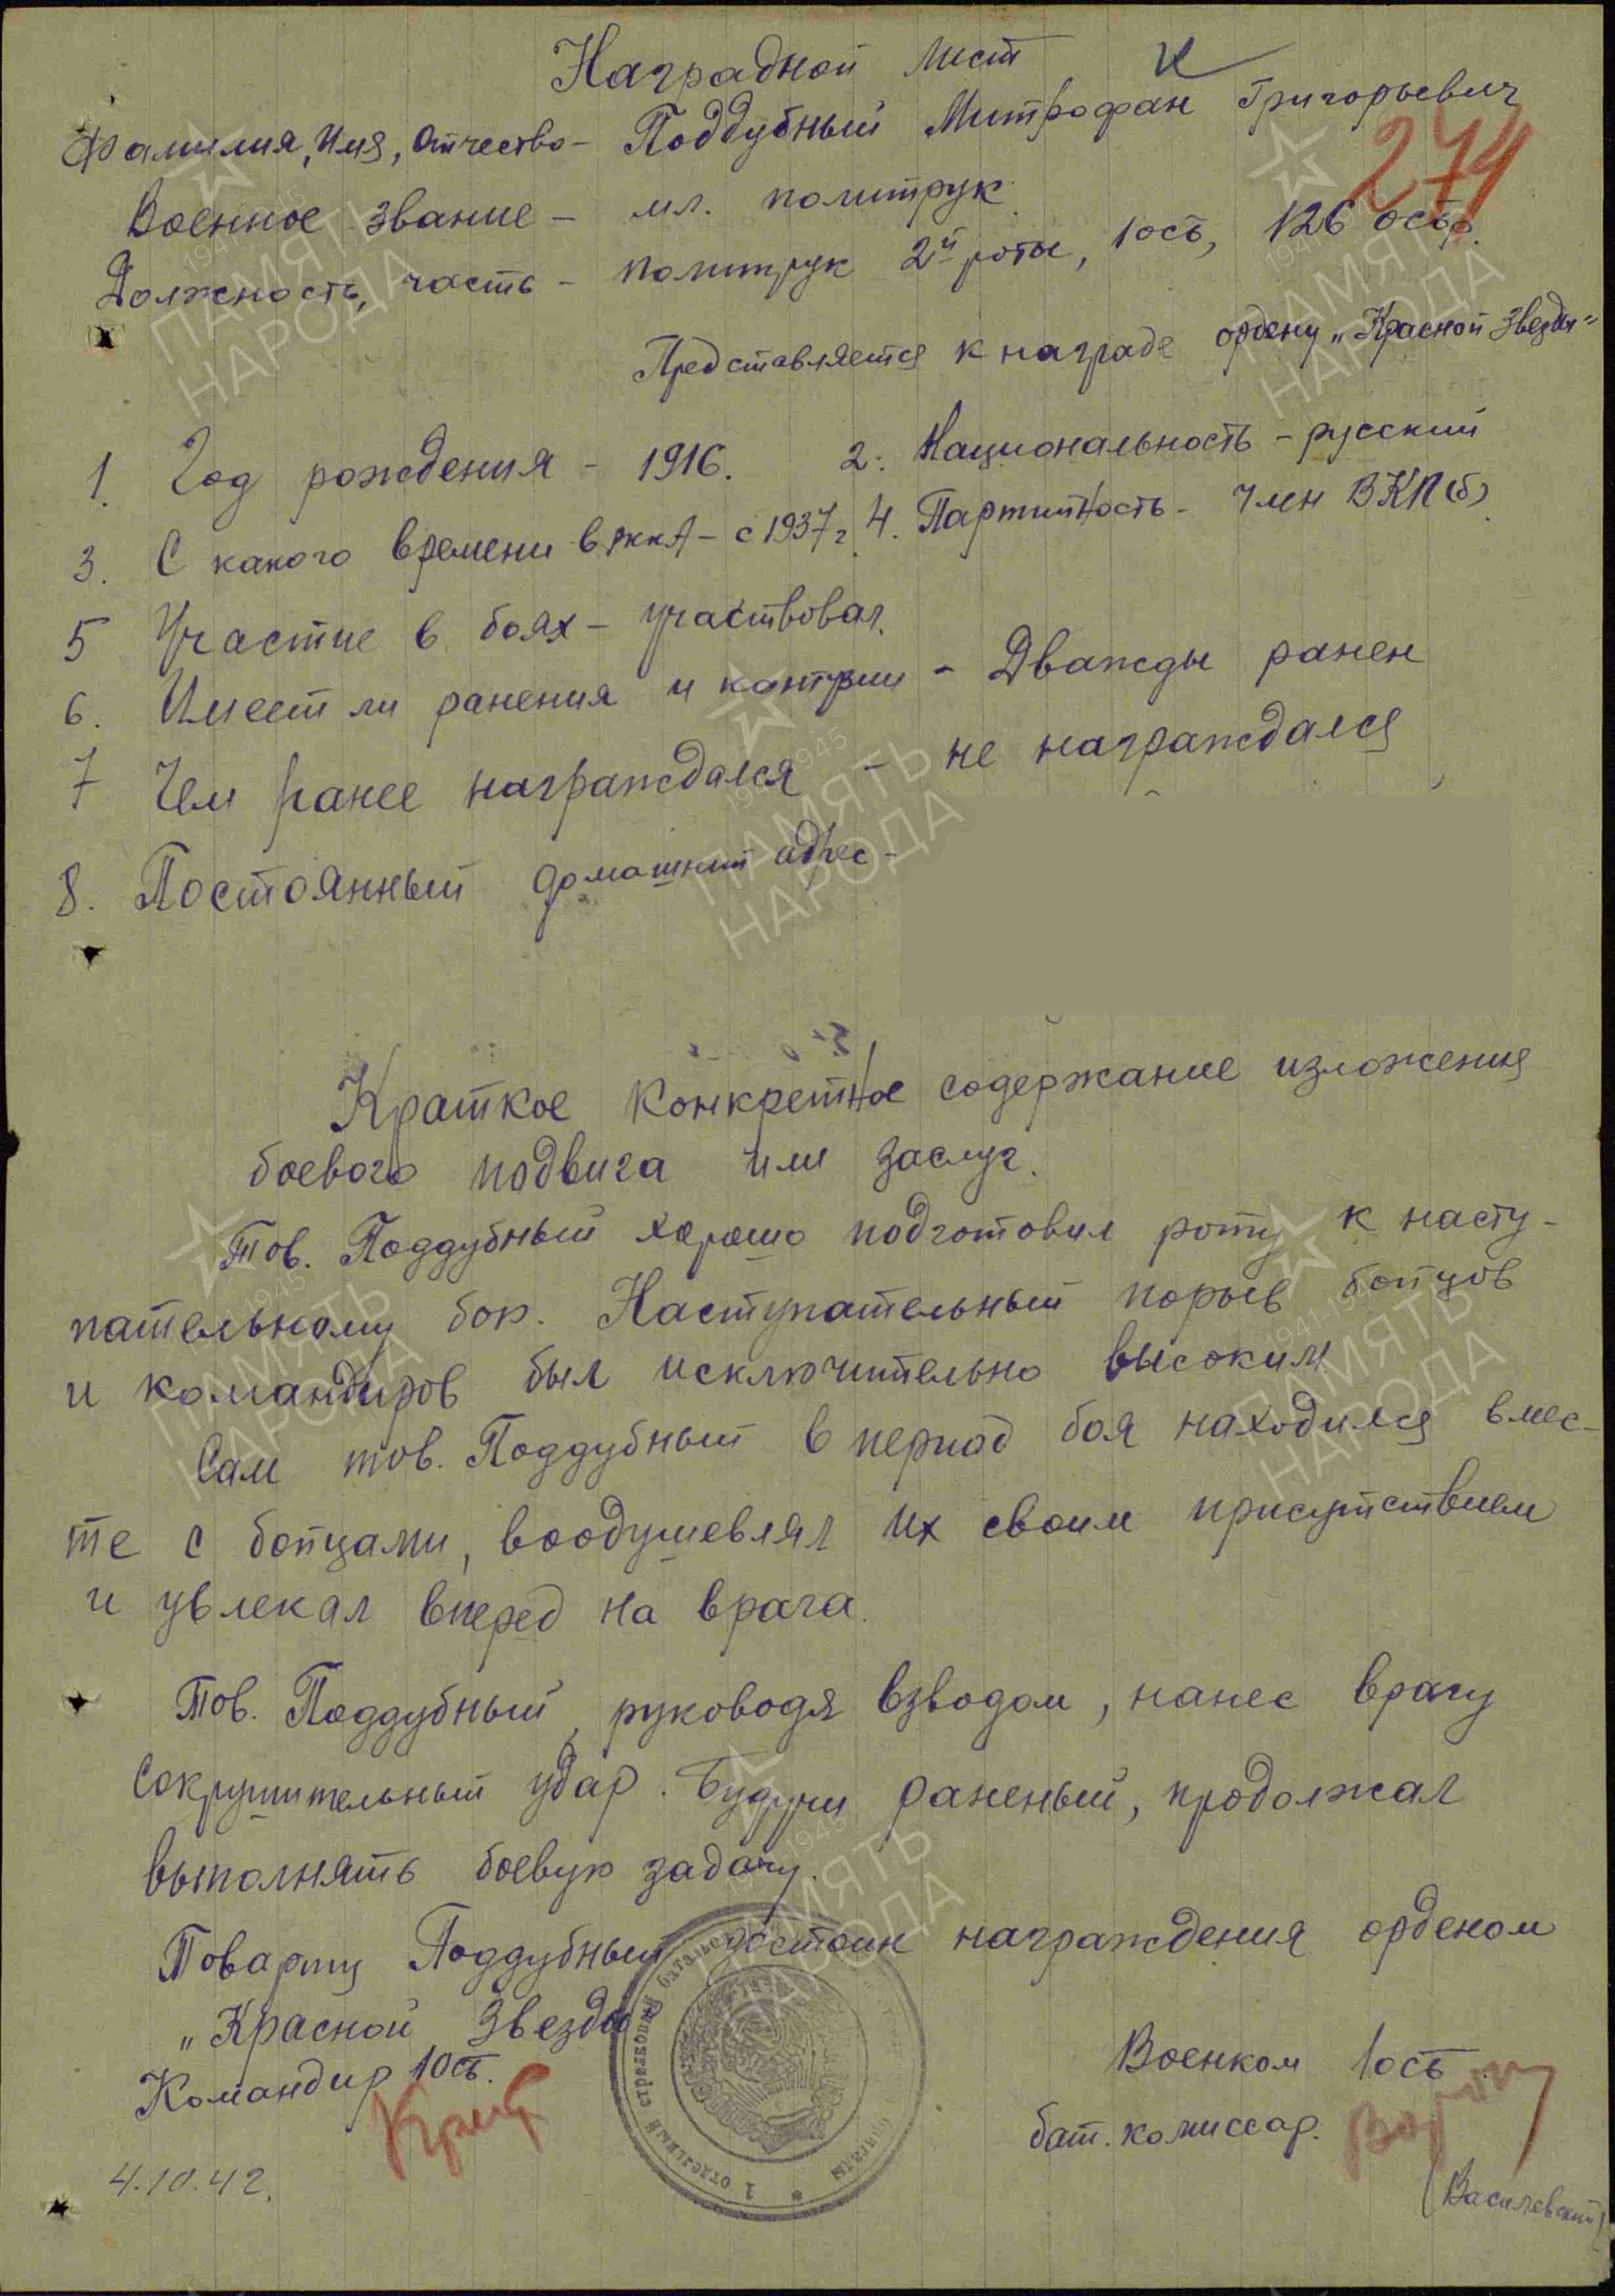 Наградной лист
Фамилия, Имя, Отчество – Поддубный Митрофан Григорьевич
274
Военное звание – мл. политрук
Должность, часть – политрук 2й роты, 1 осб, 126 осбр.
Представляется к награде ордену „Красной Звезды"
1. Год рождения – 1916. 2. Национальность – русский
3. С какого времени в РККА – с 1937 г. 4. Партийность – член ВКП(б)
5 Участие в боях – участвовал.
6. Имеет ли ранения и контузии – Дважды ранен
7 Чем ранее награждался – не награждался
8. Постоянный домашний адрес –
Краткое конкретное содержание изложения
боевого подвига или заслуг.
Тов. Поддубный хорошо подготовил роту к насту-
пательному бою. Наступательный порыв бойцов
и командиров был исключительно высоким
Сам тов. Поддубный в период боя находился вмес-
те с бойцами, воодушевлял их своим присутствием
и увлекал вперед на врага.
Тов. Поддубный, руководя взводом, нанес врагу
сокрушительный удар. Будучи раненый, продолжал
выполнять боевую задачу.
Товарищ Поддубный достоин награждения орденом
„Красной Звезды
Командир 1 осб. Военком 1 осб
бат. комиссар.
(Василевский)
4.10.42.
1 отдельный стрелковый батальон
ПАМЯТЬ НАРОДА
1941-1945